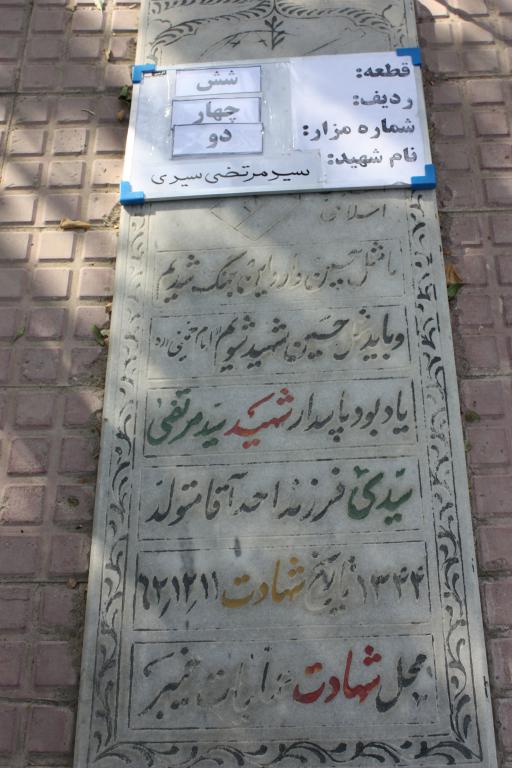 قطعه: شش
ردیف: چهار
شماره مزار: دو
نام شهید: سیدمرتضی سیدی
اسلامی
ما مثل حسین وارد این جنگ شدیم
و باید مثل حسین شهید شویم امام خمینی
یادبود پاسدار شهید سید مرتضی
سیدی فرزند احمد آقا متولد
۱۳۴۴ تاریخ شهادت ۶۲,۱۲,۱۱
محل شهادت عملیات خیبر